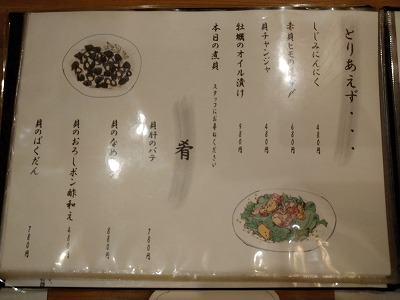 とりあえず・・・
しじみにんにく 480円
赤貝ヒモの 680円
貝チャンジャ 480円
牡蠣のオイル漬け 980円
本日の煮貝 スタッフにお尋ねください
肴
貝肝のパテ 780円
貝のなめ 880円
貝のおろしポン酢和え 480円
貝のばくだん 780円